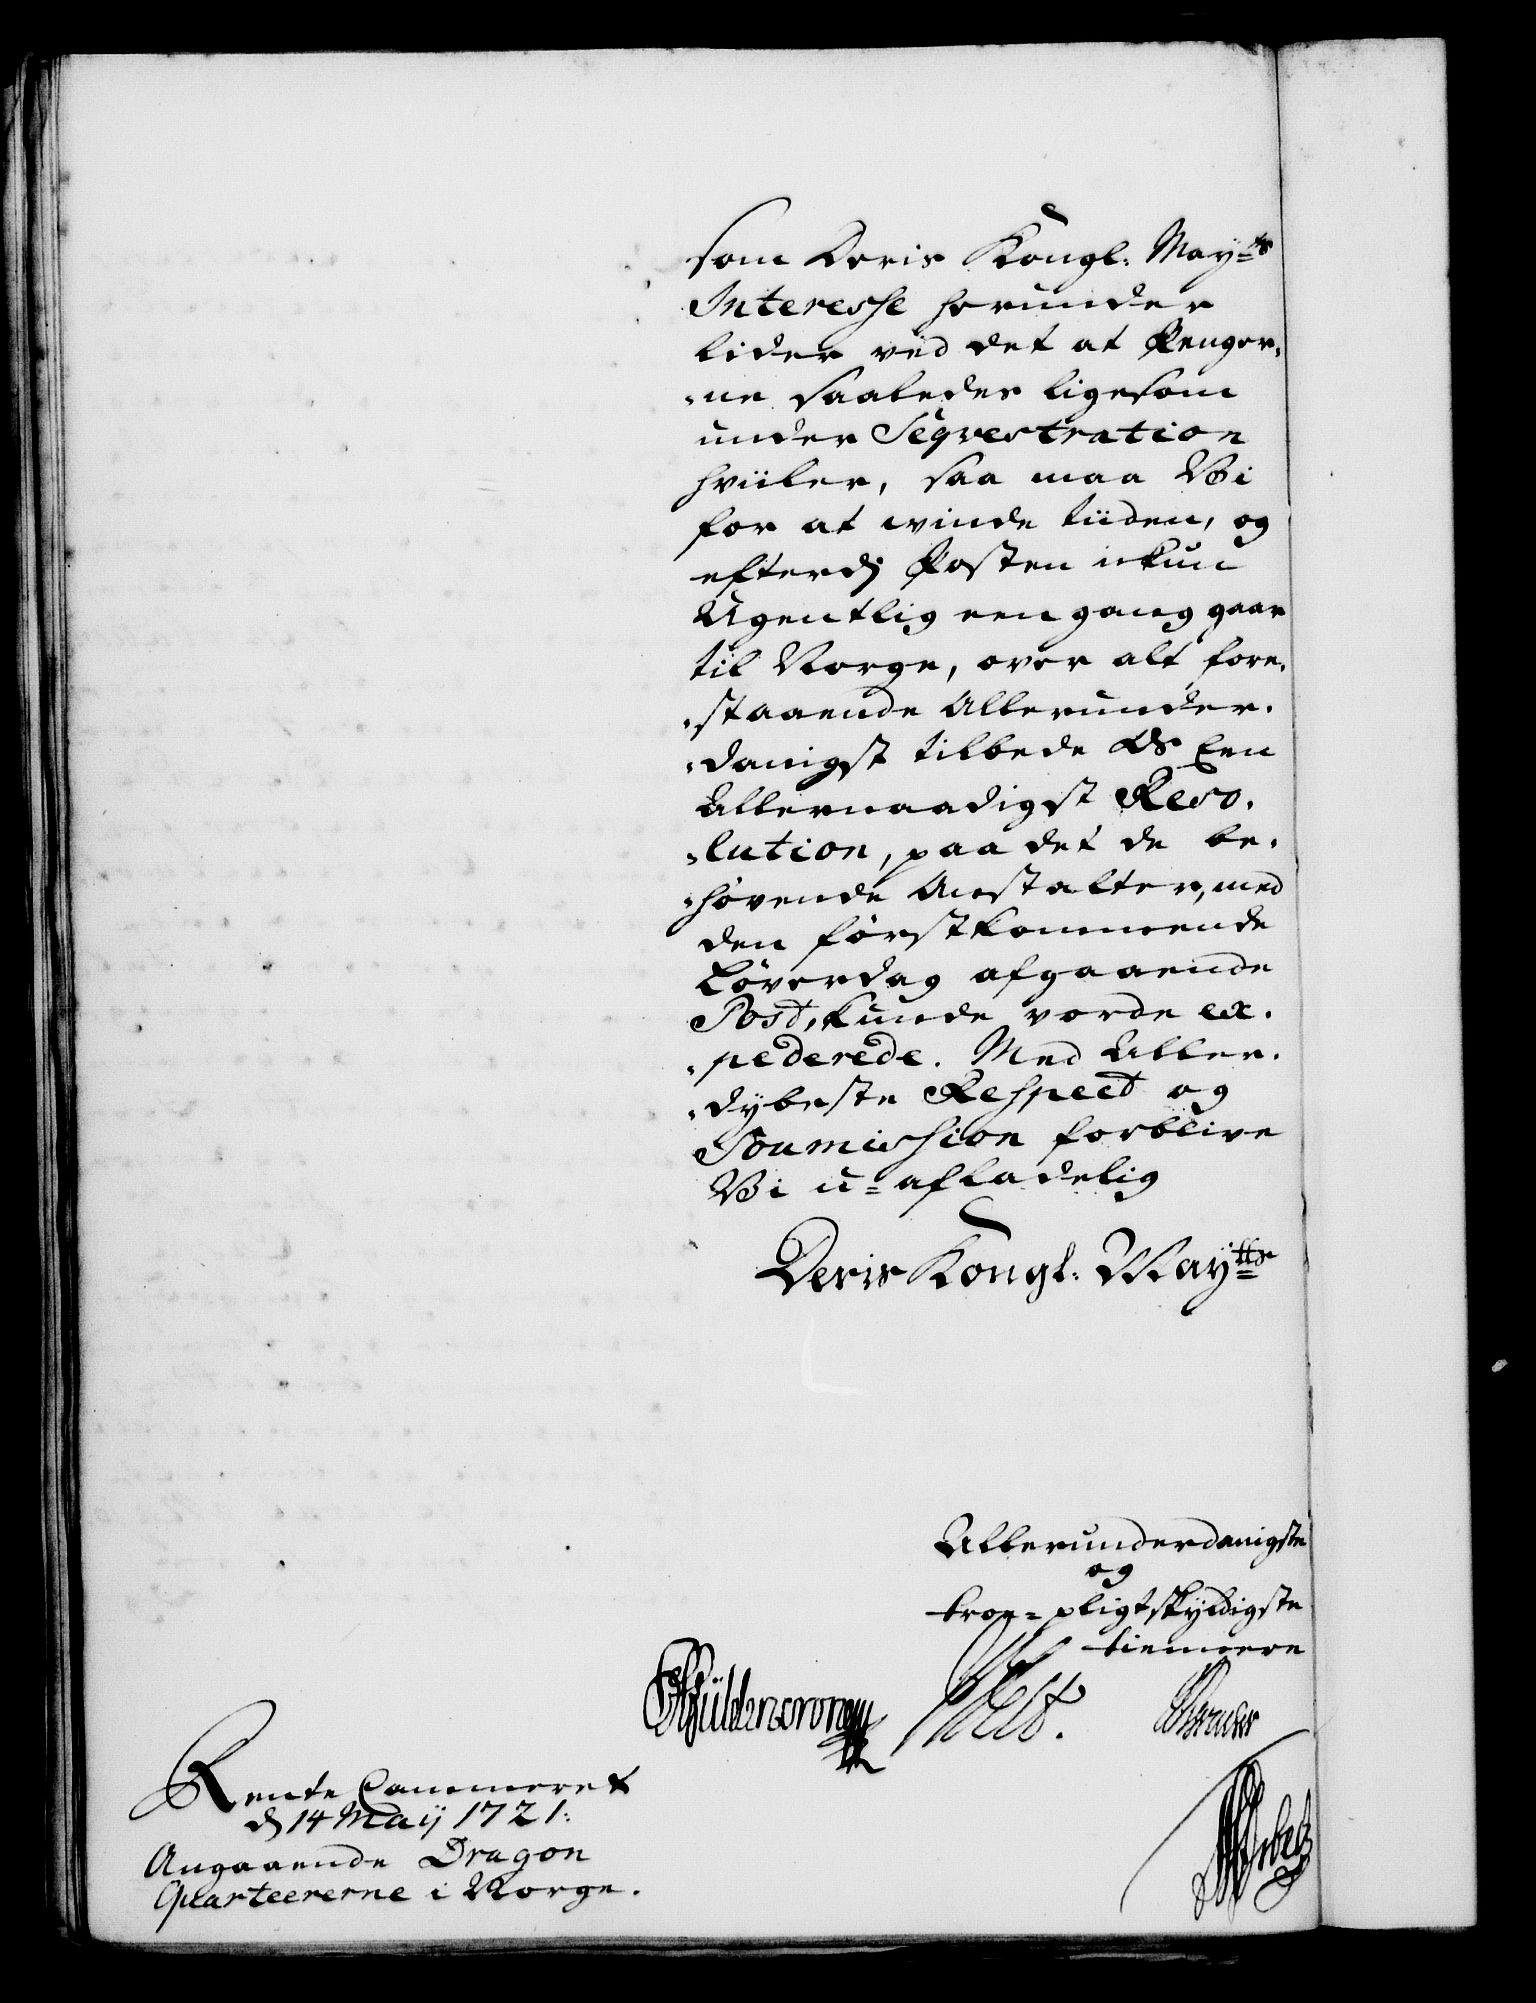 som Deris Kongl: Mayts
Interesse herunder
lider ved det at Penger¸
¸ne saaledes ligesom
under Seqvestration
hviiler, saa maa Vi
for at winde tiiden, og
efterdj Posten ickun
Ugentlig een gang gaar
til Norge, over alt fore¸
¸staaende Allerunder¸
¸danigst tilbede Os Een
Allernaadigst Reso¸
¸lution, paa det de be¸
¸høvende Anstalter, med
den førstkommende
Løverdag afgaaende
Post, kunde vorde ex¸
¸pederede. Med Aller¸
¸dybeste Respect og
Soumission forblive
Vi u=afladelig
Deris Kongl: Maytts
Allerunderdanigste
og
troe=pligtskyldigste
tienere
Güldencrone
Rente Cammeret
d 14 Maij 1721:
Angaaende Dragon
Qvarteererne i Norge.